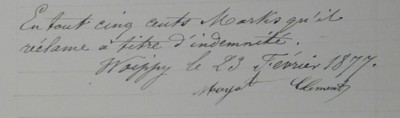 En tout cinq cents Marks qu'il
réclame a titre d'indemnité.
Woippy le 23 Février 1877.
Clement